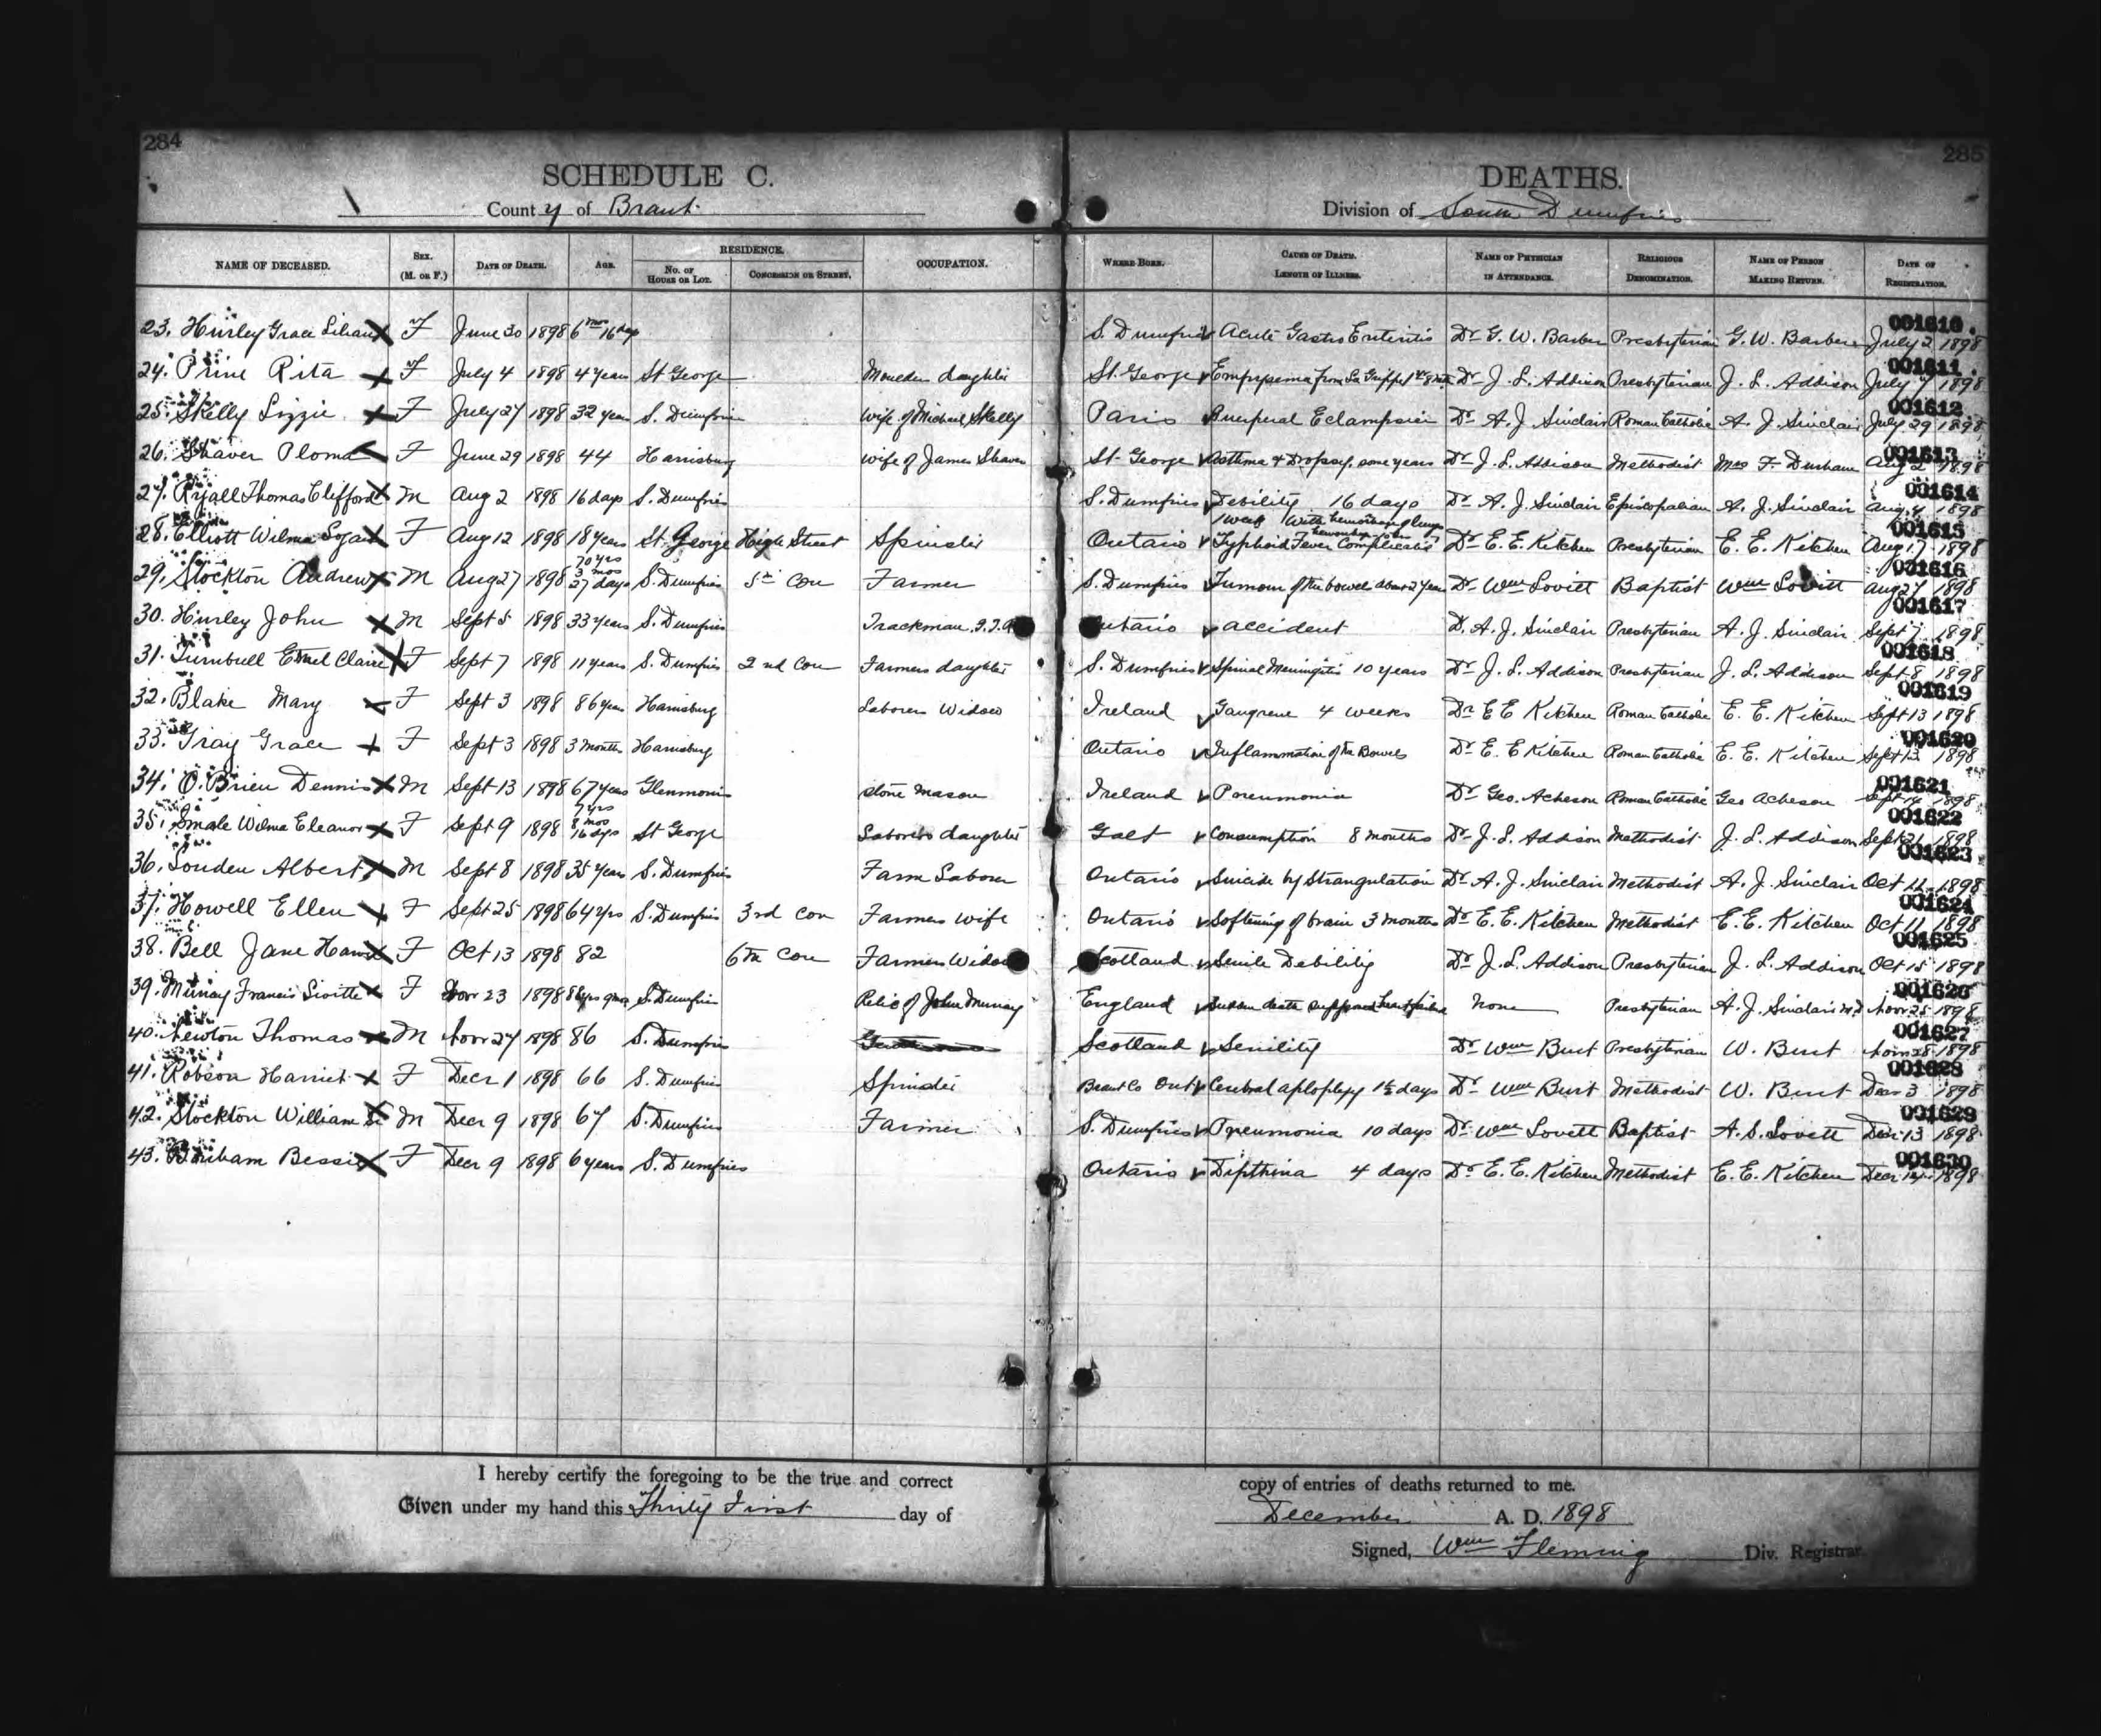 284
285
SCHEDULE C.
DEATHS.
County of Brant.
Division of South Dumfries
NAME OF DECEASED. SEX. (M. OR F.) DATE OF DEATH. AGE. RESIDENCE. NO. OF HOUSE OR LOT. CONCESSION OR STREET. OCCUPATION. WHERE BORN. CAUSE OF DEATH. LENGTH OF ILLNESS. NAME OF PHYSICIAN IN ATTENDANCE. RELIGIOUS DENOMINATION. NAME OF PERSON MAKING RETURN. DATE OF REGISTRATION.
23. Hurley Grace Lilian F June 30 1898 6 mos 16 days S. Dumfries Acute Gastro Enteritis Dr G. W. Barber Presbyterian G. W. Barber July 2 1898 001610.
24. Prine Rita F July 4 1898 4 years St George Moulders daughter St. George Empyema from La Grippe Dr J. L. Addison Presbyterian J. L. Addison July 7 1898 001611.
25. Skelly Lizzie F July 27 1898 32 years S. Dumfries wife of Michael Skelly Paris Puerperal Eclampsia Dr A. J. Sinclair Roman Catholic A. J. Sinclair July 29 1898 001612
26. Shaver Ploma F June 29 1898 44 Harrisburg wife of James Shaver St George Asthma & Dropsy, some years Dr J. L. Addison Methodist Mrs F. Durham Aug 2 1898 001613
27. Ryall Thomas Clifford M Aug 2 1898 16 days S. Dumfries S. Dumfries Debility 16 days Dr A. J. Sinclair Episcopalian A. J. Sinclair Aug 4 1898 001614
28. Elliott Wilma F Aug 12 1898 18 years St. George High Street Spinster Ontario 1 week With hemorrhage Typhoid Fever Dr E. E. Kitchen Presbyterian E. E. Kitchen Aug 17 1898 001615
29. Stockton Andrew M Aug 27 1898 70 yrs 3 mos 27 days S. Dumfries 5th Con Farmer S. Dumfries Tumour of the bowel about 2 years Dr Wm Lovitt Baptist Wm Lovitt Aug 27 1898 001616
30. Hurley John M Sept 5 1898 33 years S. Dumfries Trackman Ontario accident D. A. J. Sinclair Presbyterian A. J. Sinclair Sept 7 1898 001617
31. Turnbull Ethel Claire F Sept 7 1898 11 years S. Dumfries 2nd Con Farmers daughter S. Dumfries Spinal Meningitis 10 years Dr J. L. Addison Presbyterian J. L. Addison Sept 8 1898 001618
32. Blake Mary F Sept 3 1898 86 years Harrisburg Laborers Widow Ireland Gangrene 4 weeks Dr E E Kitchen Roman Catholic E. E. Kitchen Sept 13 1898 001619
33. Gray Grace F Sept 3 1898 3 months Harrisburg Ontario Inflammation of the Bowels Dr E. E Kitchen Roman Catholic E. E. Kitchen Sept 13 1898 001620
34. O.Brien Dennis M Sept 13 1898 67 years Glenmorris stone mason Ireland Pneumonia Dr Geo. Acheson Roman Catholic Geo Acheson Sept 14 1898 001621
35. Smale Wilma Eleanor F Sept 9 1898 7 yrs 8 mos 16 dys St George Laborers daughter Galt Consumption 8 months Dr J. L. Addison Methodist J. L. Addison Sept 21 1898 001622
36. Louden Albert M Sept 8 1898 35 years S. Dumfries Farm Laborer Ontario Suicide by Strangulation Dr A. J. Sinclair Methodist A. J. Sinclair Oct 11 1898 001623
37. Howell Ellen F Sept 25 1898 64 yrs S. Dumfries 3rd Con Farmers wife Ontario Softening of brain 3 months Dr E. E. Kitchen Methodist E. E. Kitchen Oct 11 1898 001624
38. Bell Jane F Oct 13 1898 82 6th Con Farmers Widow Scotland Senile Debility Dr J. L. Addison Presbyterian J. L. Addison Oct 15 1898 001625
39. Murray Francis F Nov 23 1898 S. Dumfries Relic of John Murray England Sudden death supposed heart failure None Presbyterian A. J. Sinclair M.D Novr 25 1898 001626
40. Newton Thomas M Novr 27 1898 86 S. Dumfries Scotland Senility Dr Wm Burt Presbyterian W. Burt Novr 28 1898 001627
41. Robson Harriet F Decr 1 1898 66 S. Dumfries Spinster Brant Co Ont Cerebral aploplexy 1½ days Dr Wm Burt Methodist W. Burt Decr 3 1898 001628
42. Stockton William Sr M Decr 9 1898 67 S. Dumfries Farmer S. Dumfries Pneumonia 10 days Dr Wm Lovett Baptist A. S. Lovett Decr 13 1898 001629
43. Bonham Bessie F Decr 9 1898 6 years S. Dumfries Ontario Dipthria 4 days Dr E. E. Kitchen Methodist E. E. Kitchen Decr 1898 001630
I hereby certify the foregoing to be the true and correct copy of entries of deaths returned to me.
Given under my hand this Thirty First day of December A. D. 1898
Signed, Wm Fleming Div. Registrar.